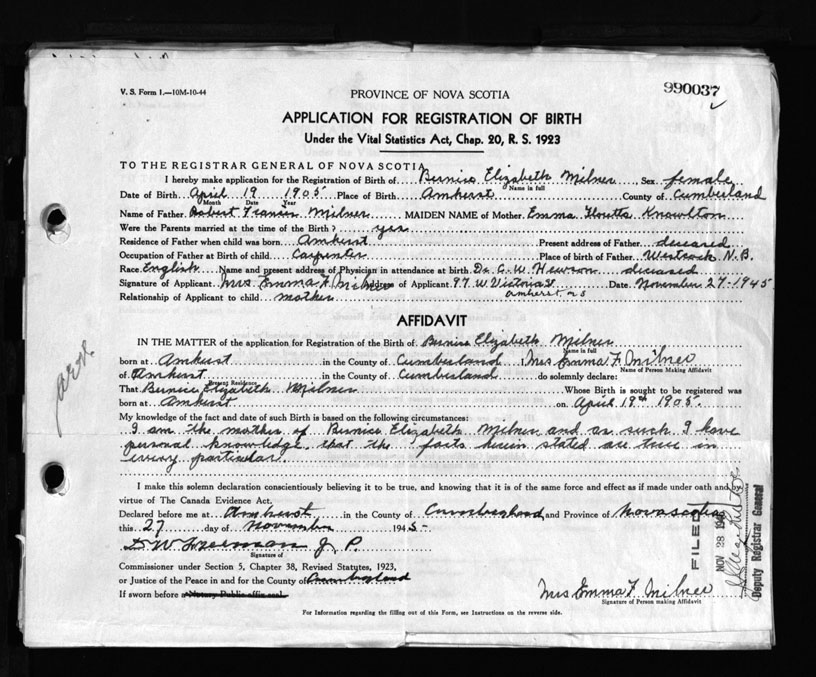 V. S. Form 1.—10M-10-44
PROVINCE OF NOVA SCOTIA
990037
APPLICATION FOR REGISTRATION OF BIRTH
Under the Vital Statistics Act, Chap. 20, R. S. 1923
TO THE REGISTRAR GENERAL OF NOVA SCOTIA
I hereby make application for the Registration of Birth of Bernice Elizabeth Milner Sex female
Name in full
Date of Birth April 19 1905 Place of Birth Amherst County of Cumberland
Month Date Year
Name of Father Robert Francis Milner MAIDEN NAME of Mother Emma Knowlton
Were the Parents married at the time of the Birth? yes
Residence of Father when child was born Amherst Present address of Father deceased
Occupation of Father at Birth of child Carpenter Place of birth of Father Westcock N.B.
Race English Name and present address of Physician in attendance at birth Dr. C. W. Hewson deceased
Signature of Applicant Mrs Emma F. Milner Address of Applicant 97 W Victoria St Date November 27-1945
Amherst, N S
Relationship of Applicant to child mother
AFFIDAVIT
IN THE MATTER of the application for Registration of the Birth of Bernice Elizabeth Milner
Name in full
born at Amherst in the County of Cumberland I Mrs Emma F. Milner
Name of Person Making Affidavit
of Amherst in the County of Cumberland do solemnly declare:
Present Residence
That Bernice Elizabeth Milner Whose Birth is sought to be registered was
born at Amherst on April 19th 1905.
My knowledge of the fact and date of such Birth is based on the following circumstances:
I am the mother of Bernice Elizabeth Milner and as such I have
personal knowledge that the facts herein stated are true in
every particular.
I make this solemn declaration conscientiously believing it to be true, and knowing that it is of the same force and effect as if made under oath and by
virtue of The Canada Evidence Act.
Declared before me at Amherst in the County of Cumberland and Province of Nova Scotia
this 27 day of November 1945-
D W Freeman J. P.
Signature of
Commissioner under Section 5, Chapter 38, Revised Statutes, 1923,
or Justice of the Peace in and for the County of Cumberland
If sworn before a Notary Public affix seal.
Mrs Emma F. Milner
Signature of Person making Affidavit
For Information regarding the filling out of this Form, see Instructions on the reverse side.
FILED
NOV 28
Deputy Registrar General